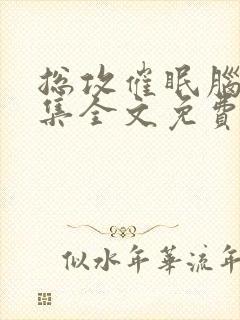 总攻催眠腦
集全文免費
似水年華流年